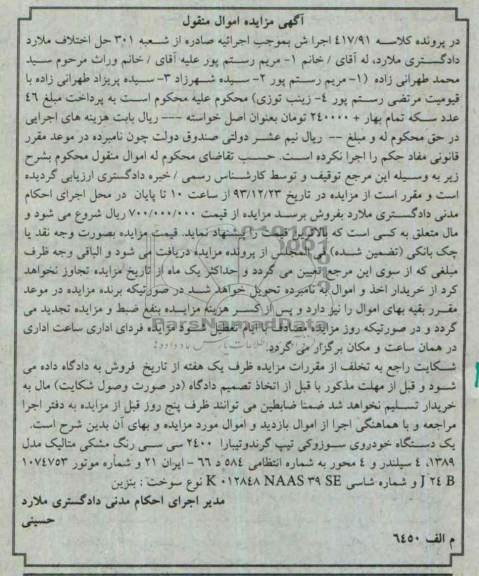 آگهی مزایده اموال منقول
در پرونده کلاسه ٤١٧/٩١ اجرا ش بموجب اجرائیه صادره از شعبه ٣٠١ حل اختلاف ملارد
دادگستری ملارد، له آقای / خانم ١- مریم رستم پور علیه آقای / خانم وراث مرحوم سید
محمد طهرانی زاده (١- مریم رستم پور ٢- سیده شهرزاد ٣- سیده پریزاد طهرانی زاده با
قیومیت مرتضی رستم پور ٤- زینب توزی) محکوم علیه محکوم است به پرداخت مبلغ ٤٦
عدد سکه تمام بهار + ٢٤٠٠٠٠ تومان بعنوان اصل خواسته --- ریال بابت هزینه های اجرایی
در حق محکوم له و مبلغ -- ریال نیم عشر دولتی صندوق دولت چون نامبرده در موعد مقرر
قانونی مفاد حکم را اجرا نکرده است. حسب تقاضای محکوم له اموال منقول محکوم بشرح
زیر به وسیله این مرجع توقیف و توسط کارشناس رسمی / خبره دادگستری ارزیابی گردیده
است و مقرر است از مزایده در تاریخ ٩٣/١٢/٢٣ از ساعت ١٠ تا پایان در محل اجرای احکام
مدنی دادگستری ملارد بفروش برسد مزایده از قیمت ٧٠٠/٠٠٠/٠٠٠ ریال شروع می شود و
مال متعلق به کسی است که بالاترین قیمت را پیشنهاد نماید. قیمت مزایده بصورت وجه نقد یا
چک بانکی (تضمین شده) فی المجلس از پرونده مزایده دریافت می شود و الباقی وجه ظرف
مبلغی که از سوی این مرجع تعیین می گردد و حداکثر یک ماه از تاریخ مزایده تجاوز نخواهد
کرد از خریدار اخذ و اموال به نامبرده تحویل خواهد شد در صورتیکه برنده مزایده در موعد
مقرر بقیه بهای اموال را نیز دارد و پس از کسر هزینه مزایده بنفع ضبط و مزایده تجدید می
گردد و در صورتیکه روز مزایده مصادف با ایام تعطیل شود مزایده فردای اداری ساعت اداری
در همان ساعت و مکان برگزار می گردد.
شکایت راجع به تخلف از مقررات مزایده ظرف یک هفته از تاریخ فروش به دادگاه داده می
شود و قبل از مهلت مذکور یا قبل از اتخاذ تصمیم دادگاه (در صورت وصول شکایت) مال به
خریدار تسلیم نخواهد شد ضمنا ضابطین می توانند ظرف پنج روز قبل از مزایده به دفتر اجرا
مراجعه و با هماهنگی اجرا از اموال بازدید و اموال مورد مزایده و بهای آن بدین شرح است.
یک دستگاه خودروی سوزوکی تیپ گرندویتیبارا ٢٤٠٠ سی سی رنگ مشکی متالیک مدل
١٣٨٩، ٤ سیلندر و ٤ محور به شماره انتظامی ٥٨٤ د ٦٦ - ایران ٢١ و شماره موتور ١٠٧٤٧٥٣
J ٢٤ B و شماره شاسی K ٠١٢٨٤٨ NAAS ٣٩ SE نوع سوخت : بنزین
مدیر اجرای احکام مدنی دادگستری ملارد
حسینی
م الف ٦٤٥٠